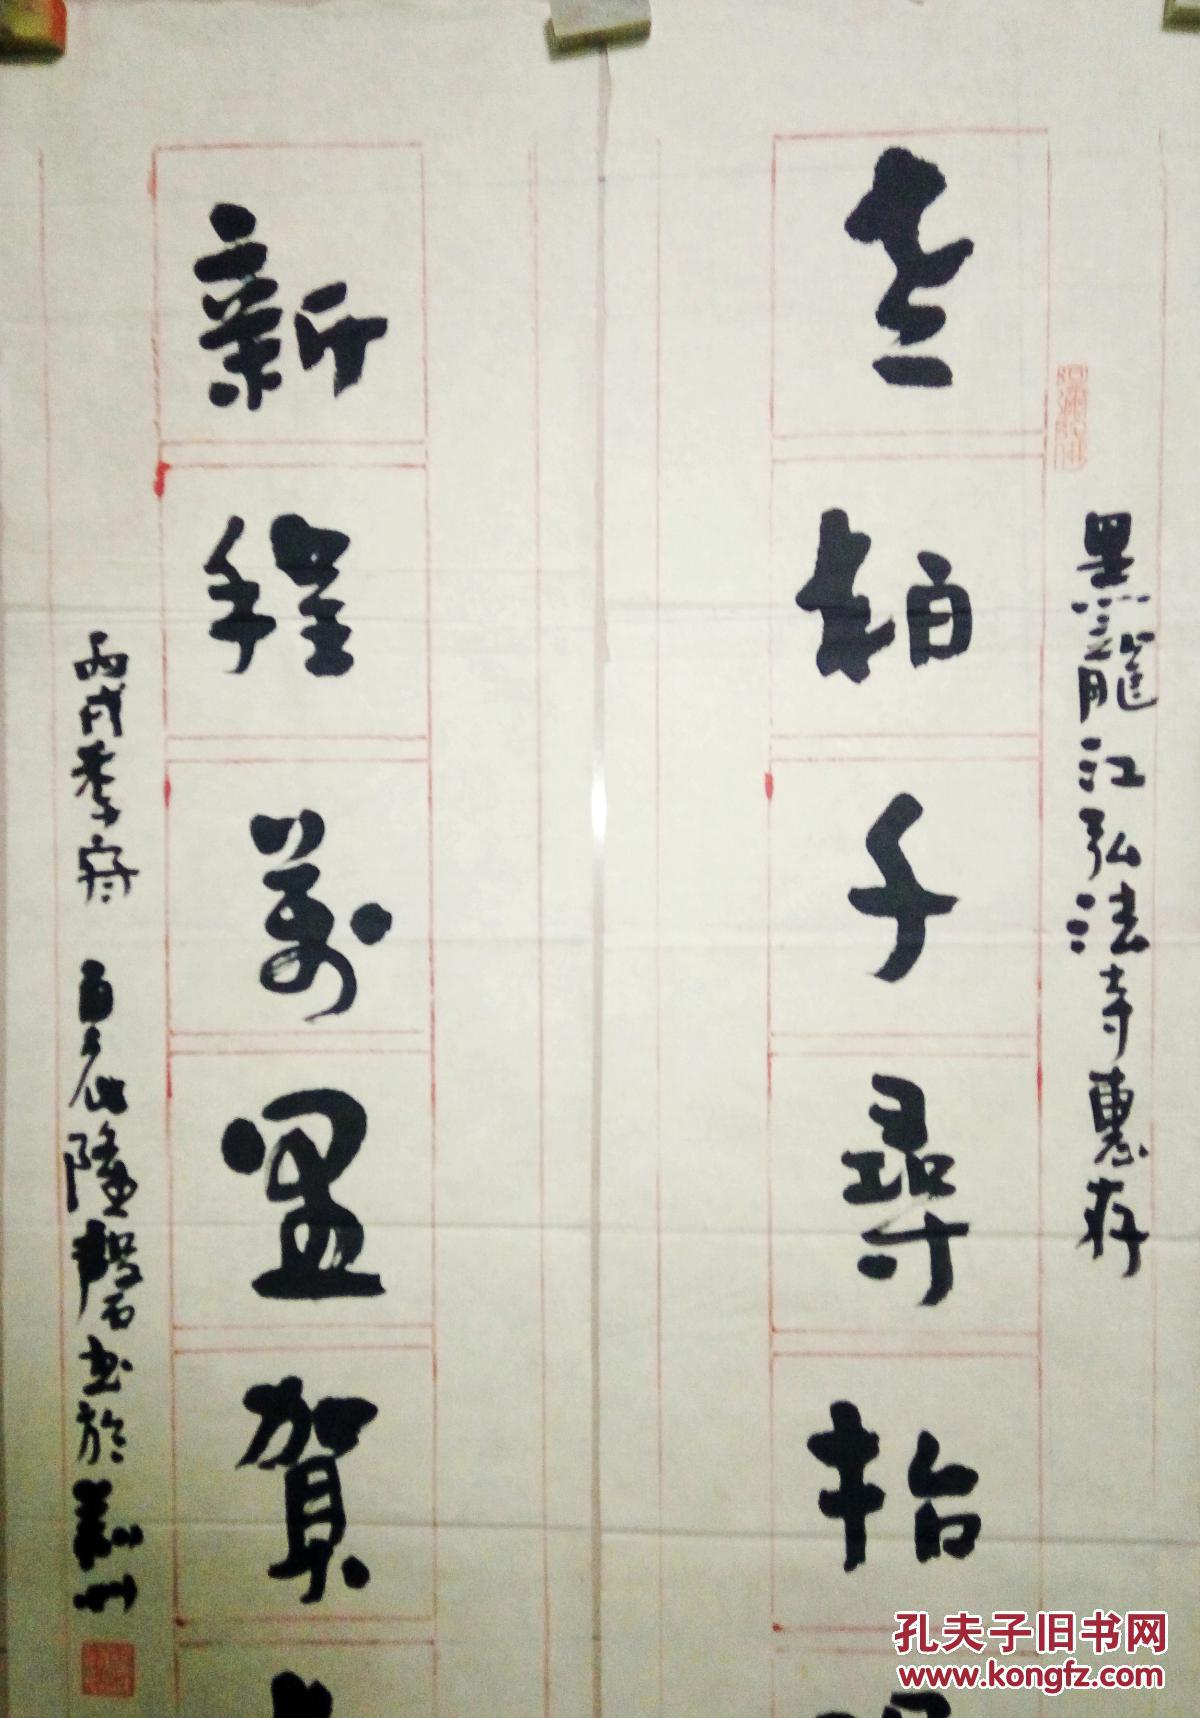 黑龍江弘法寺惠存
老柏千尋抬
新程萬里賀
丙戌季春
隆馨書於蘭州
孔夫子旧书网
www.kongfz.com